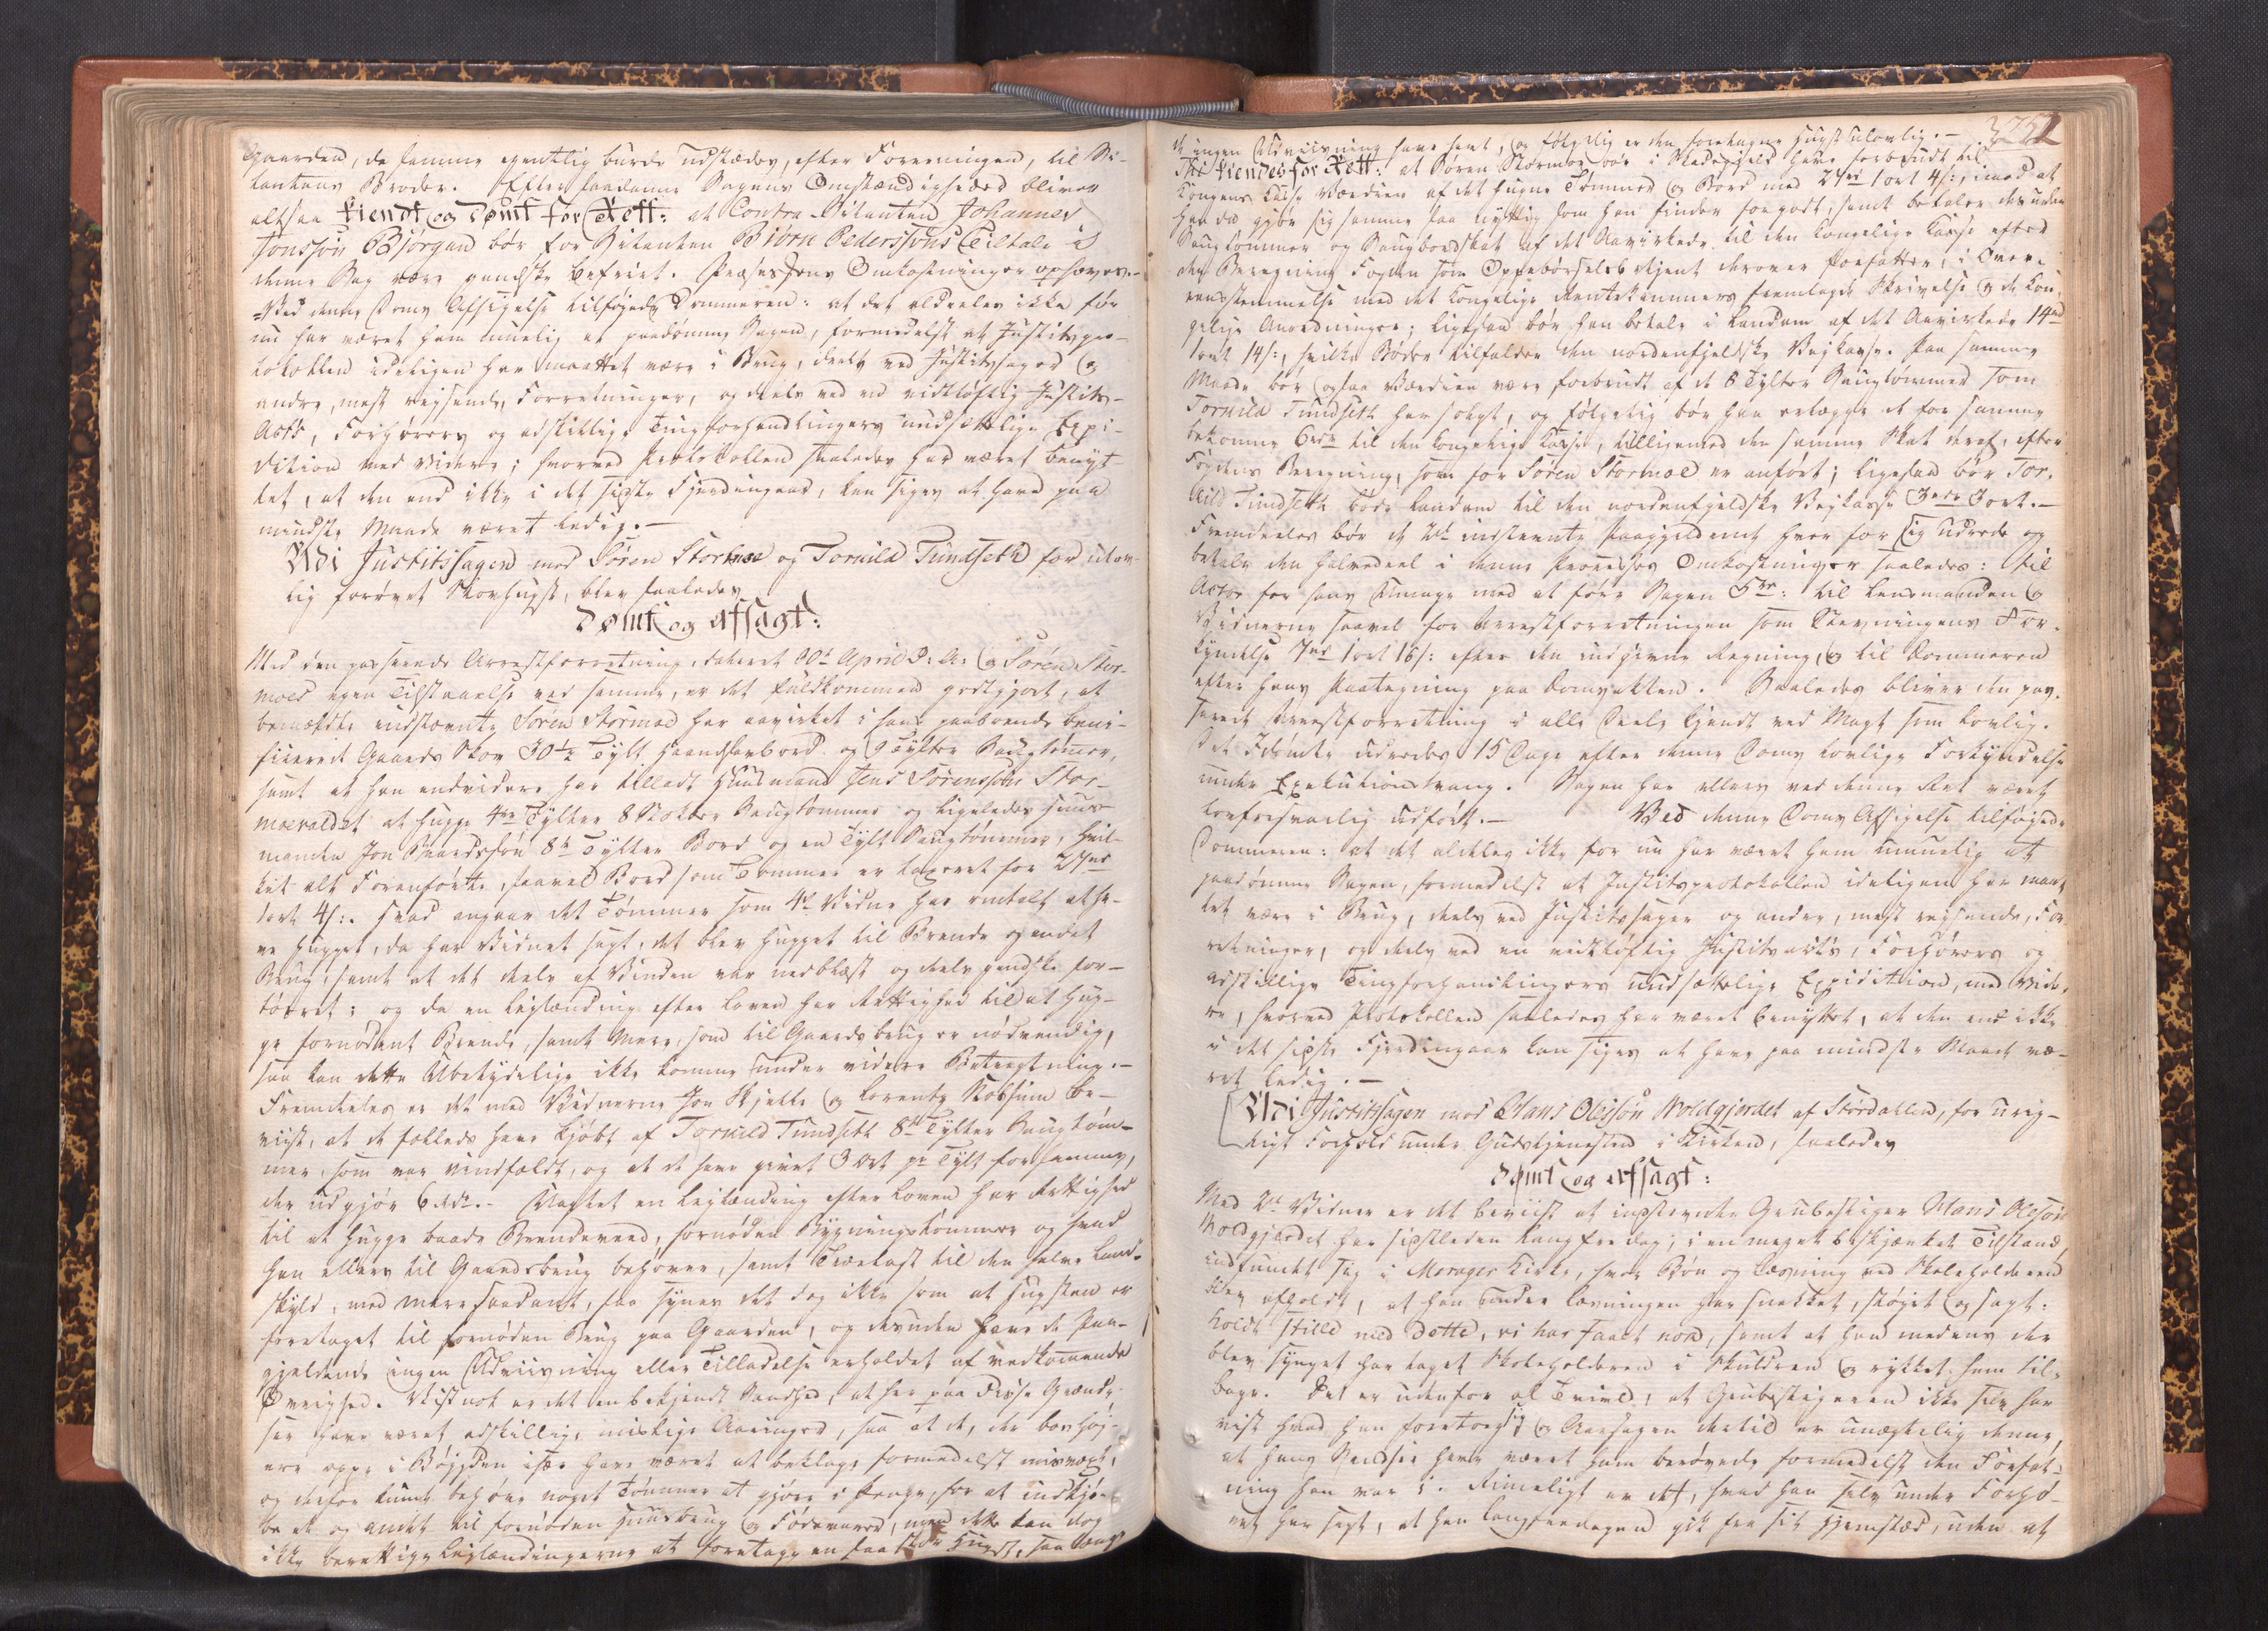 Gaarden, da samme egentlig burde udstædes, efter Foreeningen, til Ci-
tantens Broder. Efter saadanne Sagens Omstændigheder bliver
altsaa kiendt og dømt for Rett: at Contra-Citanten Johannes
Jonssøn Bjørgan bør for Citanten Biørn Pederssøns Tiltale i
denne Sag være gandske befriet. Processens Omkostninger ophæves.-
Ved denne Doms Afsigelse tilføjede Dommeren: at det aldeeles ikke før
nu har været ham muelig at paadømme Sagen, formedelst at Justitspro-
tokollen ideligen har maattet være i Brug, deels ved Justitssager og
andre, mest reisende, Forretninger, og deels ved en vidtløftig Justits-
Acts, Forhørers og adskillige Tingforhandlingers uudsættelige Expe-
dition med videre; hvorved Protokollen saaledes har været benyt-
tet, at den end ikke i det sidste Fjerdingaar, kan siges at have paa
mindste Maade været ledig.-
Udi Justitssagen mod Søren Stormoe og Tornild Tundseth for ulov-
lig forøvet Skovhugst, blev saaledes
Dømt og afsagt:
Med den passerede Arrestforretning, dateret 30te April d: A: og Søren Stor-
moes egen Tilstaaelse ved samme, er det fuldkommen godtgjort, at
bemældte indstævnte Søren Stormoe har avirket i hans paaboende beni-
ficerede Gaards Skov 30½ Tylt Haandsavbord og 9 Tylter Saugtømer,
samt at han endvidere har tilladt Huusmand Jens Sørenssøn Stor-
moevoldet at hugge 4re Tylter 8 Stokker Saugtømmer og ligeledes Huus-
manden Jon Baardssøn 8te Tylter Bord og en Tylt Saugtømmer, hvil-
ket alt Foranførte, saavel Bord som Tømmer er taxeret for 27rd
1ort 4s:. Hvad angaar det Tømmer som 4de Vidne har omtalt at ha-
ve hugget, da har Vidnet sagt, det blev hugget til Brende og andet
Brug, samt at det deels af Vinden var nedblæst og deels gandske for-
tørret; og da en Leilænding efter Loven har Rettighed til at hug-
ge fornødent Brende, samt Mere, som til Gaards brug er nødvendig,
saa kan dette Ubetydelige ikke komme under videre Betragtning.-
Fremdeeles er det med Vidnerne Jon Skjelte og Lorents Robsum be-
viist, at de fælleds have kjøbt af Tornild Tundseth 8te Tylter Saugtøm-
mer, som var vindfældt, og at de have givet 3 Ort pr Tylt for samme,
der udgjør 6 Rd.- Uagtet en Leilænding efter Loven har Rettighed
til at hugge baade Brendeveed, fornøden Bygningstømmer og hvad
han ellers til Gaardsbrug behøver, samt Trælast til den halve Land-
skyld, med mere saadant, saa synes det dog ikke som at Hugsten er
foretaget til fornøden Brug paa Gaarden, og desuden have de Paa-
gjeldende ingen Udviisning eller Tilladelse erholdet af vedkomende
Øvrighed. Vistnok er det en bekjendt Sandhed, at her paa disse Grænd-
ser have været adskillige mislige Aaringer, saa at de, der boe høj-
ere oppe i Bøjgden især have været at beklage formedelst misvæxt,
og derfor kunde behøve noget Tømmer at gjøre i Penge, for at indkjø-
be et og andet til fornøden Huusbrug og Fødevarer, men dette kan dog
ikke berettige Leilændingerne at foretage en saa stor Hugst, saa længe
252
de ingen Udviisning have havt, og følgelig er den foretagne Hugst ulovlig.-
Thi kiendes for Rett: at Søren Stormoe bør i Skadegield have forbrudt til
Kongens Kasse Værdien af det hugne Tømmer og Bord med 27rd 1ort 4s:, imod at
han da gjør sig samme saa nyttig som han finder forgodt, samt betaler desuden
Saugtømmer og Saugbordskat af det Aavirkede til den kongelige Kasse efter
den Beregning Fogden som Oppebørselsbetjent derover forfatter, i Over-
eensstemmelse med det kongelige Rentekammers fremlagde Skrivelse og de kon-
gelige Anordninger; ligesaa bør han betale i Landnam af det Aavirkede 14rd
1ort 14s:, hvilke Bøder tilfalder den nordenfjeldske Veikasse. Paa samme
Maade bør ogsaa Værdien være forbrudt af de 8 Tylter Saugtømmer som
Tornild Tundseth har solgt, og følgelig bør han erlægge det for samme
bekomne 6rdr til den kongelige Kasse, tilligemed den samme Skat deraf, efter
Fogdens Beregning, som for Søren Stormoe er anført; ligesaa bør Tor-
nild Tundseth bøde Landnam til den nordenfjeldske Vejkasse 3rdr 3ort.-
Fremdeeles bør de 2de indstevnte Paagjeldende hver for sig udrede og
betale den halvedeel i denne Processes Omkostninger saaledes: til
Actor for hans Umage med at føre Sagen 5rd: til Lensmanden og
Vidnerne saavel for Arrestforretningen som Stevningens For-
kyndelse 7rd 1ort 16s: efter den indgivne Regning, og til Dommeren
efter hans Paategning paa Domsakten. Saaledes bliver den pas-
serede Arrestforretning i alle Deele kjendt ved Magt som lovlig.
Det Idømte udredes 15 Dage efter denne Doms lovlige Forkyndelse
under Exekutionstvang. Sagen har ellers ved denne Ret været
lovforsvarlig udført.- Ved denne Doms Afsigelse tilføjede
Dommeren: at det aldeles ikke før nu har været ham muuelig at
paadømme Sagen, formedelst at Justitsprotokollen ideligen har maat-
tet være i Brug, deels ved Justitssager og andre, mest reisende, For-
retninger, og deels ved en vidtløftig Justitsacts, Forhørers og
adskillige Tingforhandlingers uudsættelige Expidition, med vide-
re, hvorved Protokollen saaledes har været benyttet, at den end ikke
i det sidste Fjerdingaar kan siges at have paa mindste Maade væ-
ret ledig.-
Udi Justitssagen mod Hans Olessøn Woldgjerdet af Størdallen, for urig-
tigt Forhold under Gudstjenesten i Kirken, saaledes
Dømt og afsagt:
Med 2de Vidner er det beviist at indstevnte Grubestiger Hans Olessøn
Woldgjerdet har sidstleden Langfredag, i en meget beskjænket Tilstand,
indfundet sig i Meragers Kirke, hvor Bøn og Læsning ved Skoleholderen
blev afholdt, at han under Læsningen har snakket, støjet og sagt:
holdt stille med dette, vi har faaet nok, samt at han medens der
blev synget har taget Skoleholderen i Skuldren og rykket ham til-
bage. Det er udenfor al Tvivl, at Grubestigeren ikke selv har
vist hvad han foretog sig og Aarsagen dertil er unægtelig denne,
at hans Sandser have været ham berøvede formedelst den Forfat-
ning han var i. Rimeligt er det, hvad han selv under Forhø-
ret har sagt, at han Langfredagen gik fra sit Hjemsted, uden at